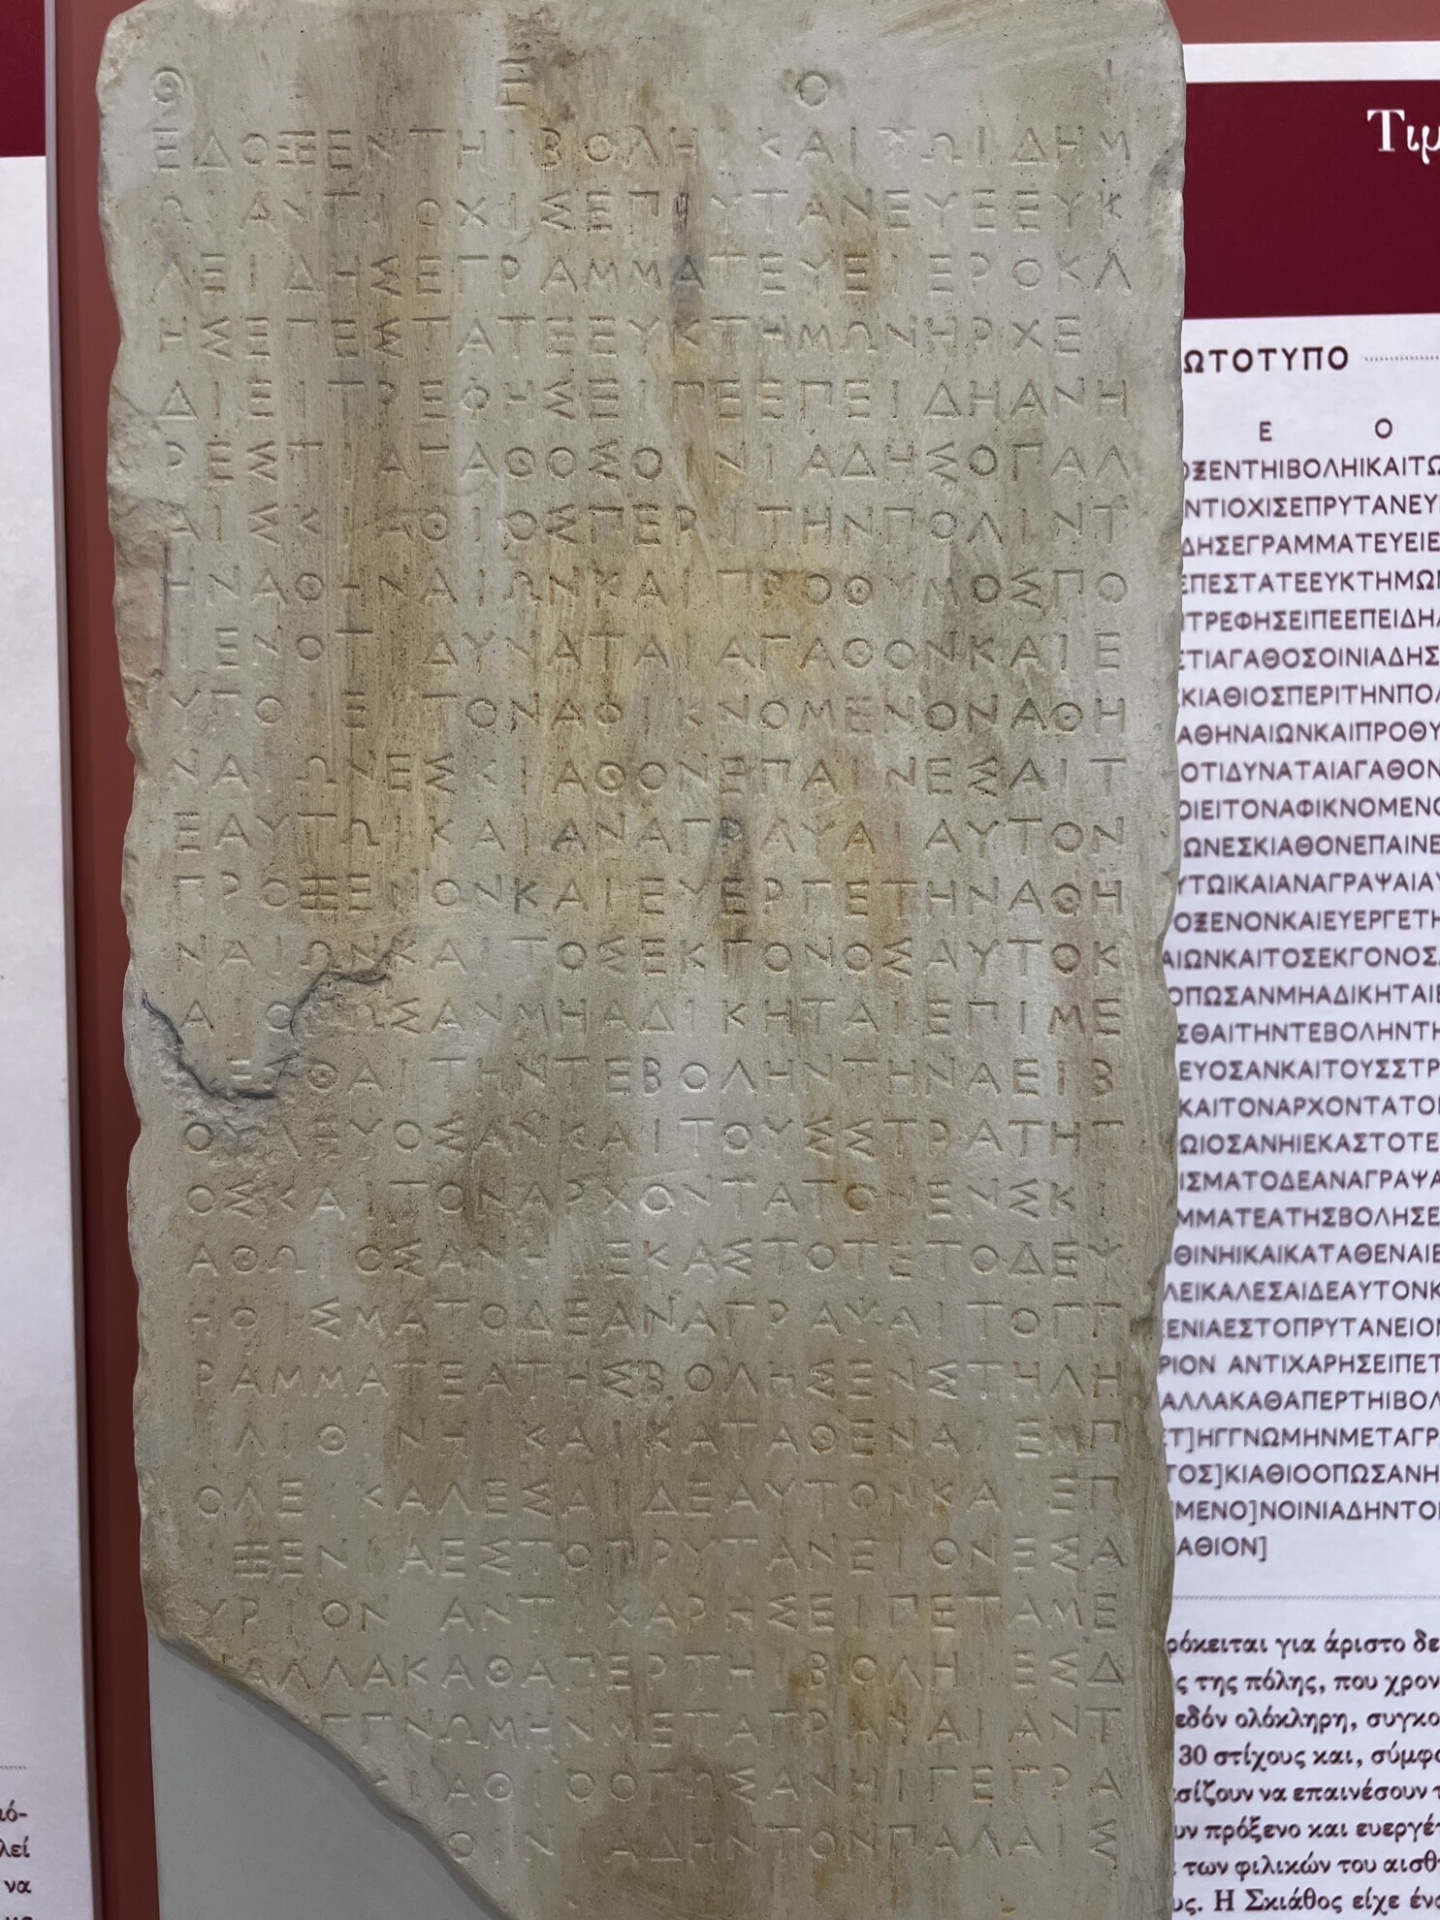 Θ Ε Ο Ι
ΕΔΟΞΕΝΤΗΙΒΟΛΗΙΚΑΙΤΩΙΔΗΜ
ΩΙΑΝΤΙΟΧΙΣΕΠΡΥΤΑΝΕΥΕΕΥΚ
ΛΕΙΔΗΣΕΓΡΑΜΜΑΤΕΥΕΙΕΡΟΚΛ
ΗΣΕΠΕΣΤΑΤΕΕΥΚΤΗΜΩΝΗΡΧΕ
ΔΙΕΙΤΡΕΦΗΣΕΙΠΕΕΠΕΙΔΗΑΝΗ
ΡΕΣΤΙΑΓΑΘΟΣΟΙΝΙΑΔΗΣΟΠΑΛ
ΑΙΣΚΙΑΘΙΟΣΠΕΡΙΤΗΝΠΟΛΙΝΤ
ΗΝΑΘΗΝΑΙΩΝΚΑΙΠΡΟΘΥΜΟΣΠΟ
ΙΕΝΟΤΙΔΥΝΑΤΑΙΑΓΑΘΟΝΚΑΙΕ
ΥΠΟΙΕΙΤΟΝΑΦΙΚΝΟΜΕΝΟΝΑΘΗ
ΝΑΙΩΝΕΣΚΙΑΘΟΝΕΠΑΙΝΕΣΑΙΤ
ΕΑΥΤΩΙΚΑΙΑΝΑΓΡΑΨΑΙΑΥΤΟΝ
ΠΡΟΞΕΝΟΝΚΑΙΕΥΕΡΓΕΤΗΝΑΘΗ
ΝΑΙΩΝΚΑΙΤΟΣΕΚΓΟΝΟΣΑΥΤΟΚ
ΑΙΟΠΩΣΑΝΜΗΑΔΙΚΗΤΑΙΕΠΙΜΕ
ΕΣΘΑΙΤΗΝΤΕΒΟΛΗΝΤΗΝΑΕΙΒ
ΟΥΛΕΥΟΣΑΝΚΑΙΤΟΥΣΣΤΡΑΤΗΓ
ΟΣΚΑΙΤΟΝΑΡΧΟΝΤΑΤΟΝΕΝΣΚΙ
ΑΘΩΙΟΣΑΝΗΙΕΚΑΣΤΟΤΕΤΟΔΕΨ
ΗΦΙΣΜΑΤΟΔΕΑΝΑΓΡΑΨΑΙΤΟΓΓ
ΡΑΜΜΑΤΕΑΤΗΣΒΟΛΗΣΕΝΣΤΗΛΗ
ΙΛΙΘΙΝΗΙΚΑΙΚΑΤΑΘΕΝΑΙΕΜΠ
ΟΛΕΙΚΑΛΕΣΑΙΔΕΑΥΤΟΝΚΑΙΕΠ
ΙΞΕΝΙΑΕΣΤΟΠΡΥΤΑΝΕΙΟΝΕΣΑ
ΥΡΙΟΝ ΑΝΤΙΧΑΡΗΣΕΙΠΕΤΑΜΕ
ΑΛΛΑΚΑΘΑΠΕΡΤΗΙΒΟΛΗΙΕΣΔ
ΓΓΝΩΜΗΝΜΕΤΑΓΡΑΨΑΙΑΝΤ
ΚΙΑΘΙΟΟΠΩΣΑΝΗΙΓΕΓΡΑ
ΟΙΝΙΑΔΗΝΤΟΝΠΑΛΑΙΣ
ΩΤΟΤΥΠΟ
Ε Ο
ΟΞΕΝΤΗΙΒΟΛΗΙΚΑΙΤΩ
ΝΤΙΟΧΙΣΕΠΡΥΤΑΝΕΥ
ΔΗΣΕΓΡΑΜΜΑΤΕΥΕΙΕ
ΕΠΕΣΤΑΤΕΕΥΚΤΗΜΩ
ΙΤΡΕΦΗΣΕΙΠΕΕΠΕΙΔΗ
ΣΤΙΑΓΑΘΟΣΟΙΝΙΑΔΗΣ
ΚΙΑΘΙΟΣΠΕΡΙΤΗΝΠΟΛ
ΑΘΗΝΑΙΩΝΚΑΙΠΡΟΘΥ
ΟΤΙΔΥΝΑΤΑΙΑΓΑΘΟΝ
ΟΙΕΙΤΟΝΑΦΙΚΝΟΜΕΝΟ
ΩΝΕΣΚΙΑΘΟΝΕΠΑΙΝΕ
ΥΤΩΙΚΑΙΑΝΑΓΡΑΨΑΙΑΥ
ΟΞΕΝΟΝΚΑΙΕΥΕΡΓΕΤΗ
ΑΙΩΝΚΑΙΤΟΣΕΚΓΟΝΟΣ
ΟΠΩΣΑΝΜΗΑΔΙΚΗΤΑΙΕ
ΣΘΑΙΤΗΝΤΕΒΟΛΗΝΤΗ
ΕΥΟΣΑΝΚΑΙΤΟΥΣΣΤΡ
ΚΑΙΤΟΝΑΡΧΟΝΤΑΤΟ
ΩΙΟΣΑΝΗΙΕΚΑΣΤΟΤΕ
ΙΣΜΑΤΟΔΕΑΝΑΓΡΑΨΑ
ΜΜΑΤΕΑΤΗΣΒΟΛΗΣΕ
ΘΙΝΗΙΚΑΙΚΑΤΑΘΕΝΑΙΕ
ΛΕΙΚΑΛΕΣΑΙΔΕΑΥΤΟΝΚ
ΕΝΙΑΕΣΤΟΠΡΥΤΑΝΕΙΟΝ
ΡΙΟΝ ΑΝΤΙΧΑΡΗΣΕΙΠΕΤ
ΑΛΛΑΚΑΘΑΠΕΡΤΗΙΒΟΛ
ΕΤ]ΗΓΓΝΩΜΗΝΜΕΤΑΓΡ
ΤΟΣ]ΚΙΑΘΙΟΟΠΩΣΑΝΗ
ΜΕΝΟ]ΝΟΙΝΙΑΔΗΝΤΟ
ΑΘΙΟΝ]
ρόκειται για άριστο δε
ς της πόλης, που χρον
εδόν ολόκληρη, συγκο
30 στίχους και, σύμφω
σίζουν να επαινέσουν τ
υν πρόξενο και ευεργέτ
των φιλικών του αισθ
υς. Η Σκιάθος είχε ένα